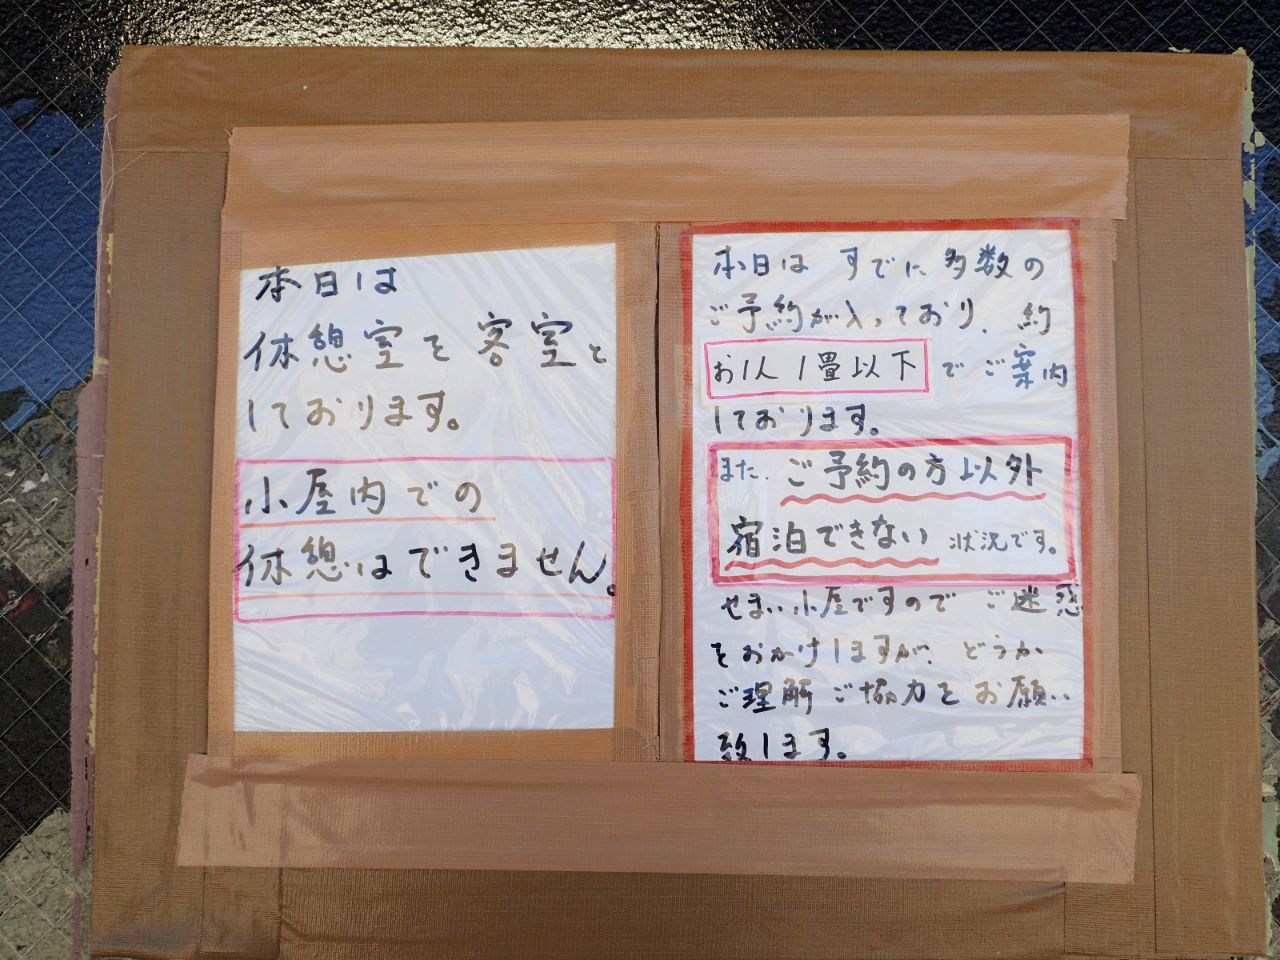 本日は
休憩室を客室と
しております。
小屋内での
休憩はできません。
本日は すでに多数の
ご予約が入っており、約
お1人1畳以下でご案内
しております。
また、ご予約の方以外
宿泊できない状況です。
せまい小屋ですので ご迷惑
をおかけしますが、どうか
ご理解ご協力をお願い
致します。